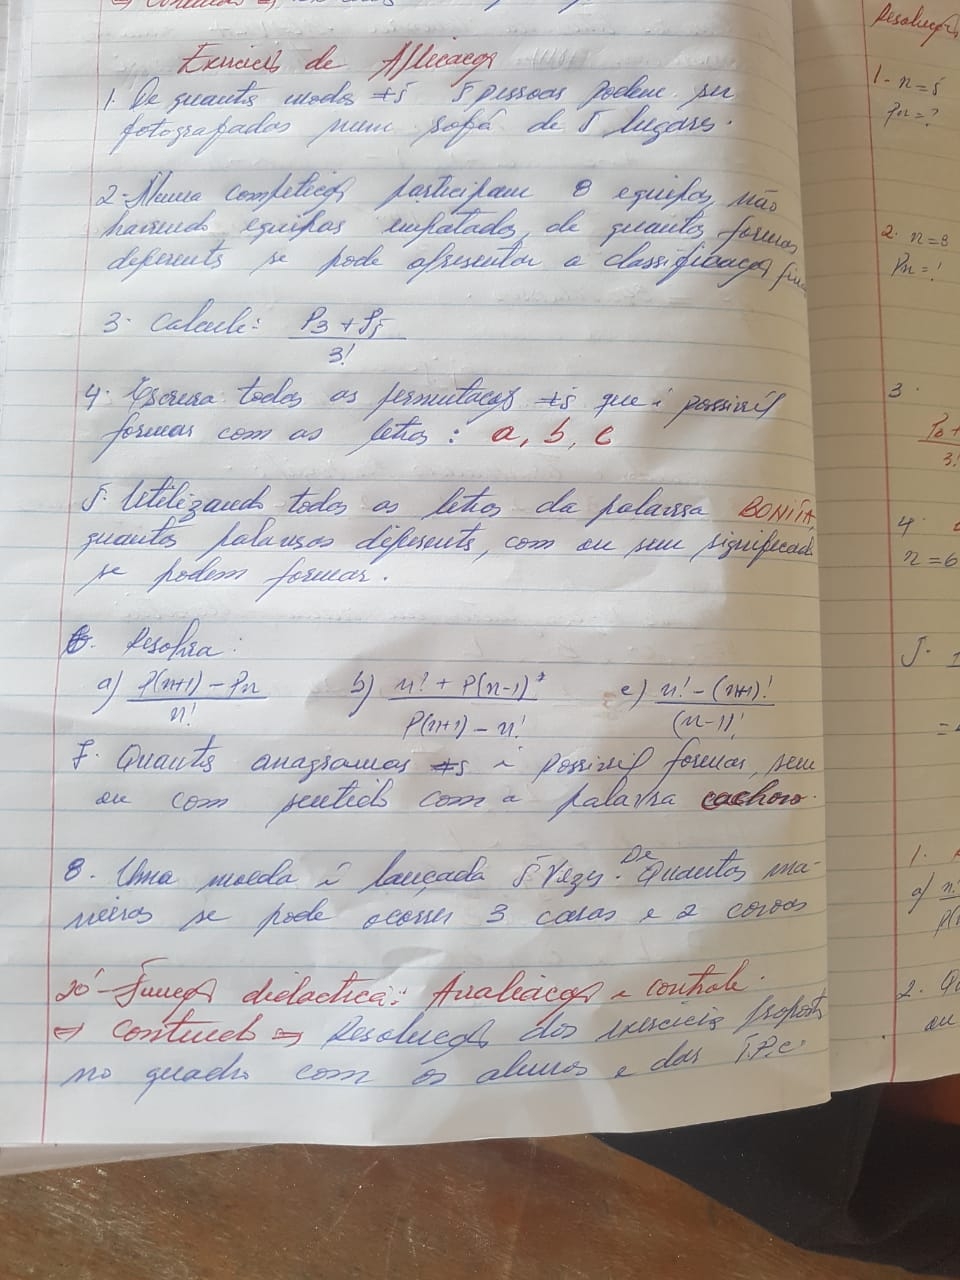 Exercicis de Aplicaçoẽs
1. De quants modos ≠s 5 pessoas podem ser
fotografadas num sofá de 5 lugares.
2- Numa competição participam 8 equipas, não
havendo equipas empatadas, de quantas formas
diferents se pode apresentar a classificação
3. Calcule: P3 + P5
3!
4. Escreva todas as permutaçoẽs ≠s que é possivél
formar com as letras : a, b, c
5. Utilizando todas as letras da palavra BONITA,
quantas palavras diferents, com ou sem significado
se podem formar.
6. Resolva:
a) P(n+1) - Pn b) n! + P(n-1) c) n! - (n+1)!
n! P(n+1) - n! (n-1)!
7. Quants anagramas ≠s é possivél formar, sem
ou com sentido com a palavra cachoro.
8. Uma moeda é lançada 5 vezes. De Quantas ma-
neiras se pode ocorrer 3 caras e 2 coroas
20' - Função didactica: Avaliação e controle.
⇒ Conteudo ⇒ Resolução dos exercicis
no quadro com os alunos e das T.P.c.
Resolução
1- n=5
Pn=?
2. n=8
Pn=!
3.
3!
4.
n=6
5.
1.
a)
2.
ou